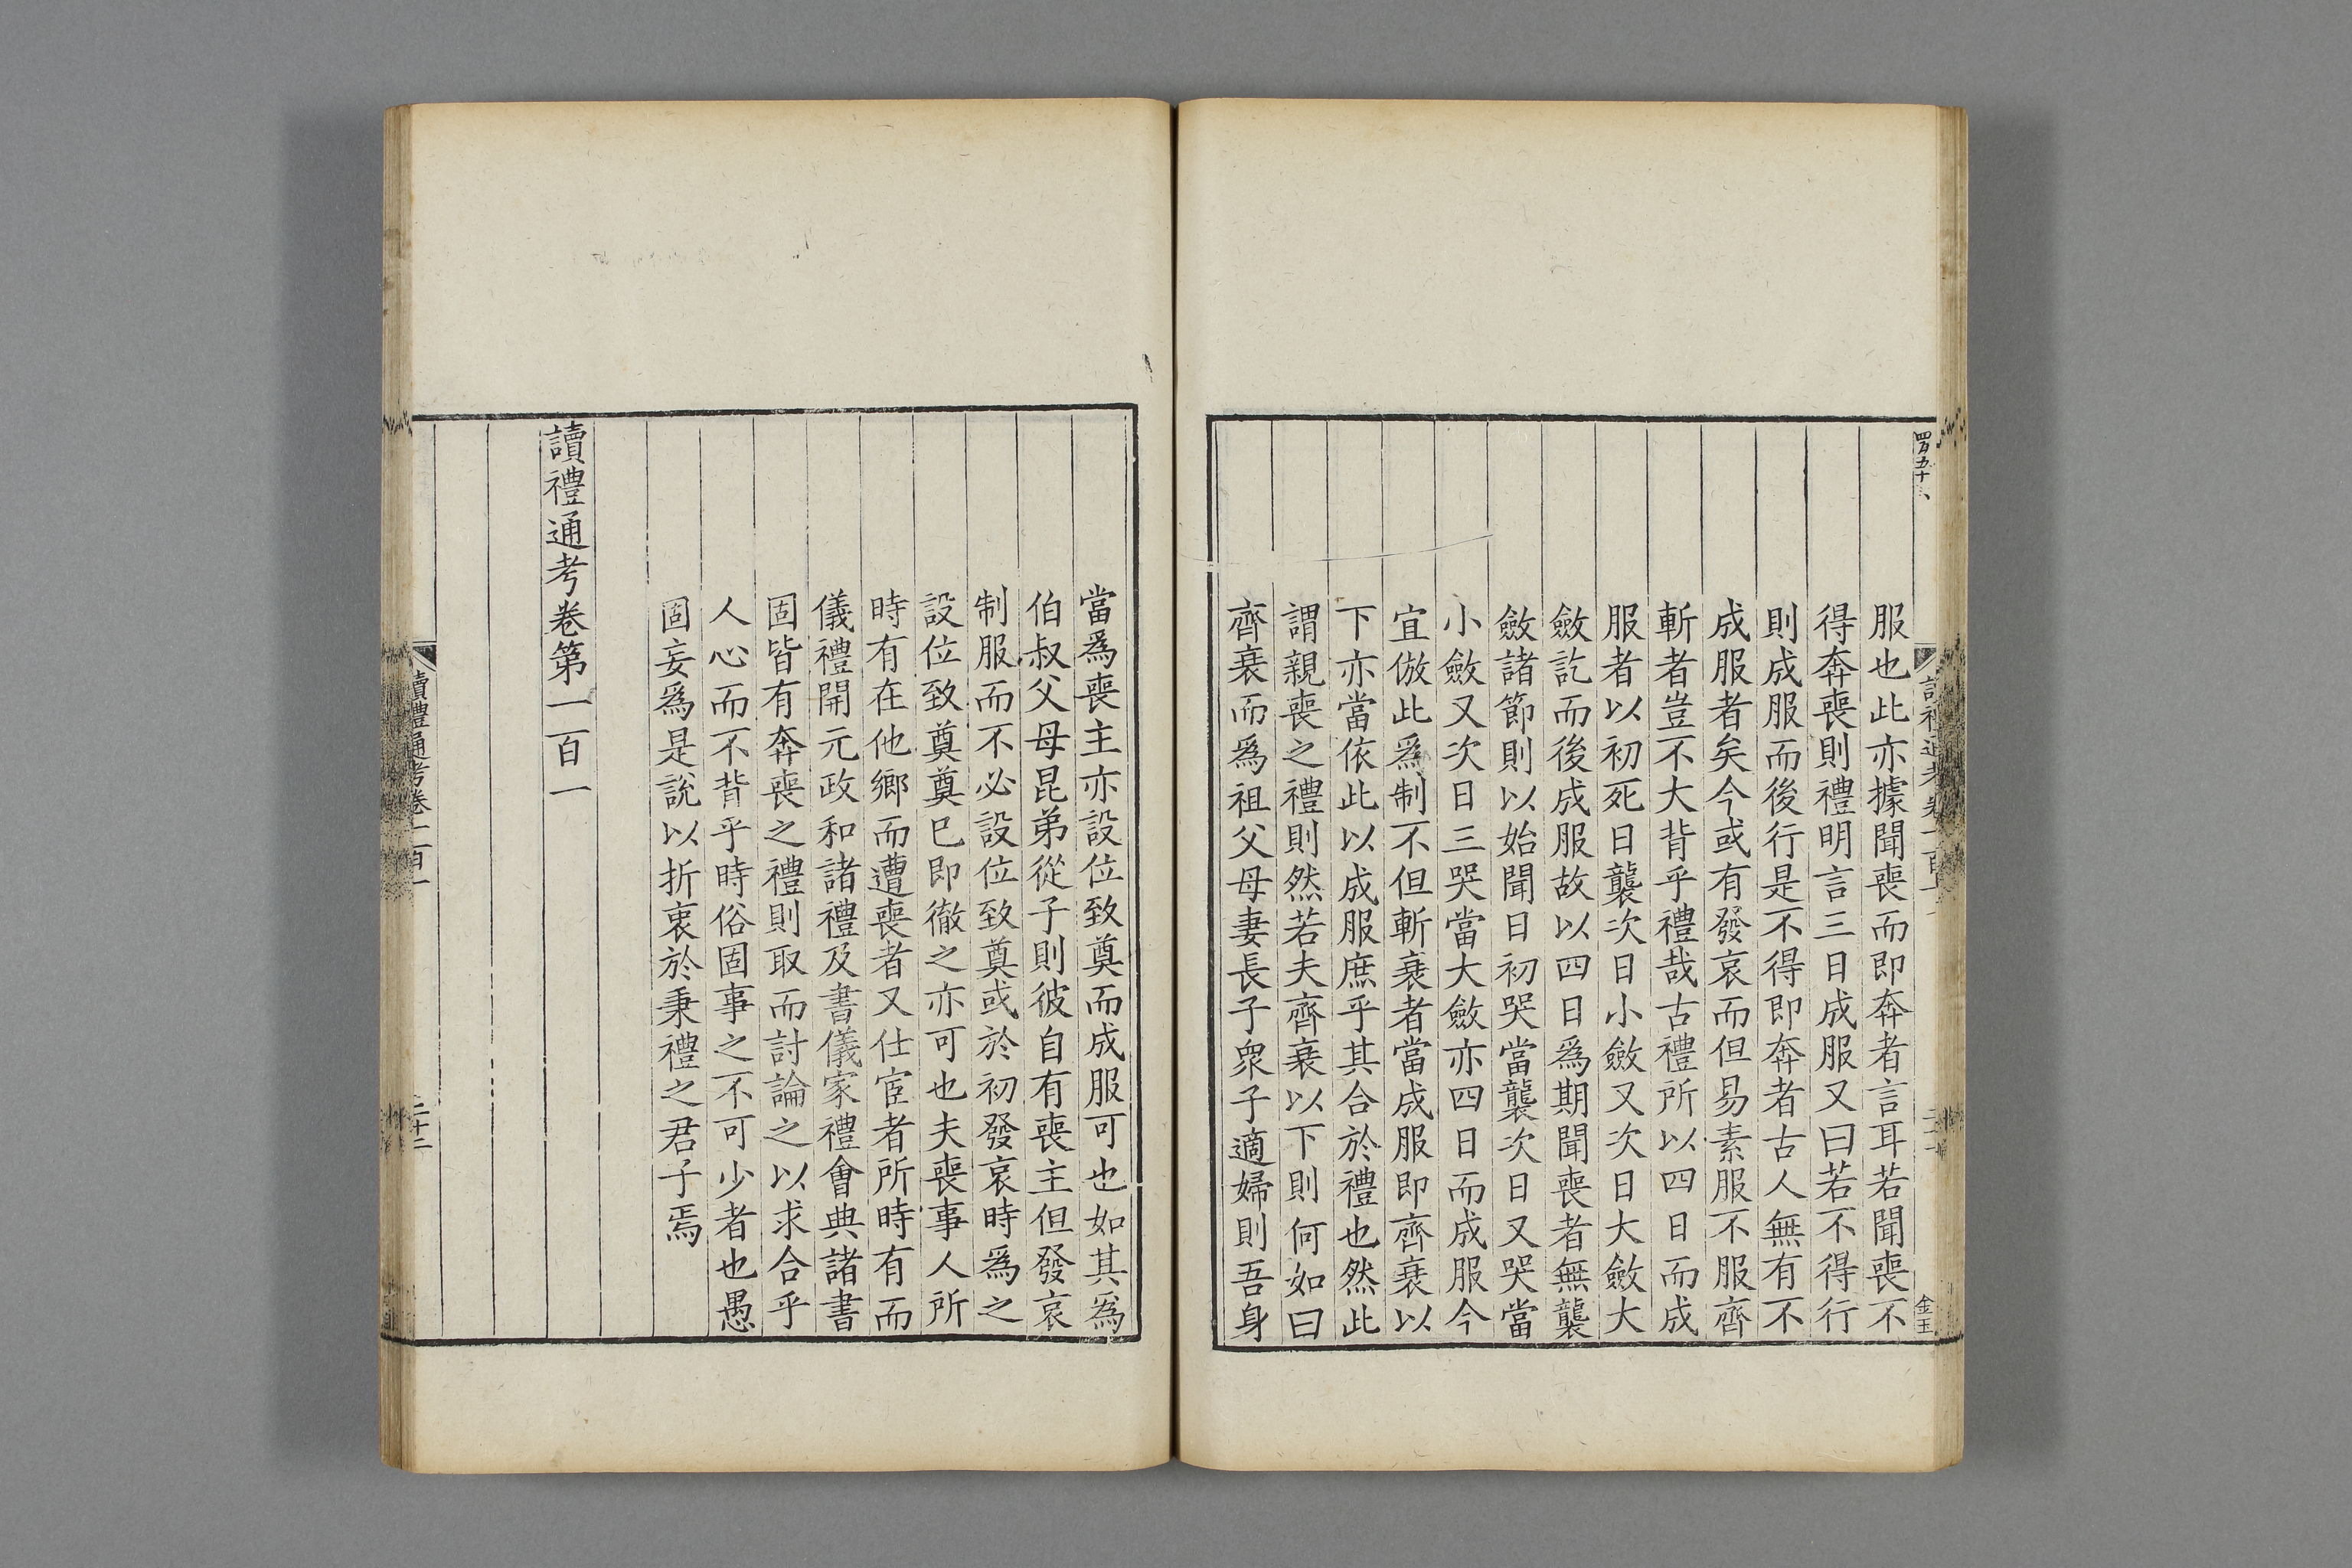 服也此亦據聞喪而即奔者言耳若聞喪不
得奔喪則禮明言三日成服又曰若不得行
則成服而後行是不得即奔者古人無有不
成服者矣今或有發哀而但易素服不服齊
斬者豈不大背乎禮哉古禮所以四日而成
服者以初死日襲次日小斂又次日大斂大
斂訖而後成服故以四日爲期聞喪者無襲
斂諸節則以始聞日初哭當襲次日又哭當
小斂又次日三哭當大斂亦四日而成服今
宜倣此爲制不但斬衰者當成服即齊衰以
下亦當依此以成服庶乎其合於禮也然此
謂親喪之禮則然若夫齊衰以下則何如曰
齊衰而爲祖父母妻長子衆子適婦則吾身
當爲喪主亦設位致奠而成服可也如其爲
伯叔父母昆弟從子則彼自有喪主但發哀
制服而不必設位致奠或於初發哀時爲之
設位致奠奠已即徹之亦可也夫喪事人所
時有在他鄉而遭喪者又仕宦者所時有而
儀禮開元政和諸禮及書儀家禮會典諸書
固皆有奔喪之禮則取而討論之以求合乎
人心而不背乎時俗固事之不可少者也愚
固妄爲是說以折衷於秉禮之君子焉
讀禮通考卷第一百一
讀禮通考卷一百一
二十二
金玉